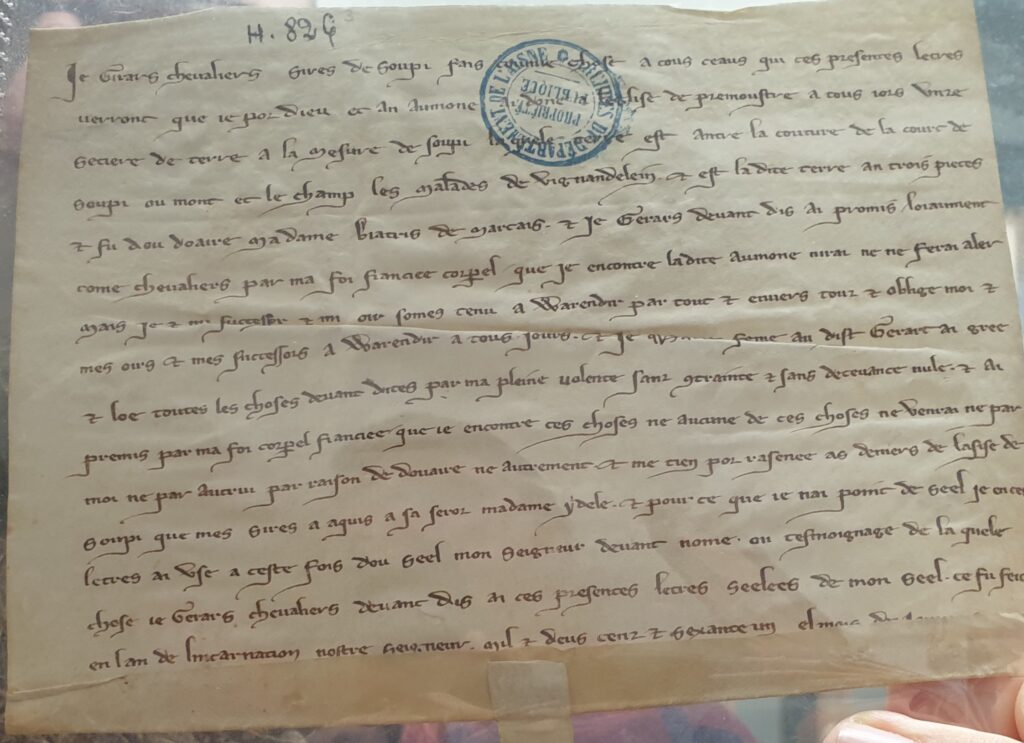 H. 826
DÉPARTEMENT DE L'AISNE
PROPRIÉTÉ PUBLIQUE
Je Gerars chevaliers sires de Soupi fais a tous ceaus qui ces presentes letres
verront que ie por dieu et an aumone de premoustre a tous iors
seciere de terre a la mesure de Soupi est antre la couture de la court de
Soupi ou mont et le champ les malades de & est la dite terre an trois pieces
& fu dou doaire ma dame Biatris de & Je Gerars devant dis ai promis loiaument
come chevaliers par ma foi fianciee corpel que Je encontre ladite Aumone nirai ne ne ferai aler
mais Je & mi successor & mi oir somes tenu a Warendir par tout & envers touz & oblige moi &
mes oirs & mes successors a Warendir a tous jours. & Je feme an dist Gerart ai gree
& loe toutes les choses devant dites par ma pleine volente sanz 9trainte & sans decevance nule. & Ai
premis par ma foi corpel fianciee que ie encontre ces choses ne aucune de ces choses ne venrai ne par
moi ne par autrui par raison de douaire ne autrement & me tien por as deniers de lasise de
Soupi que mes sires a aquis a sa seror madame ydele. & pour ce que ie nai point de seel je
letres ai use a ceste fois dou seel mon seigneur devant nome. ou tesmoignage de la quele
chose ie Gerars chevaliers devant dis ai ces presentes letres seelees de mon seel. ce fu
en lan de lincarnation nostre seigneur. mil & deus cenz & sexante